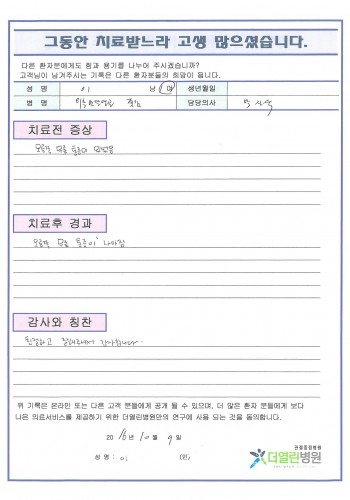 그동안 치료받느라 고생 많으셨습니다.
다른 환자분에게도 힘과 용기를 나누어 주시겠습니까?
고객님이 남겨주시는 기록은 다른 환자분들의 희망이 됩니다.
성 명 이 남 여 생년월일
병 명 담당의사
치료전 증상
오른쪽 무릎 통증이
치료후 경과
오른쪽 무릎 통증이 나아짐
감사와 칭찬
친절하고 감사합니다.
위 기록은 온라인 또는 다른 고객 분들에게 공개 될 수 있으며, 더 많은 환자 분들에게 보다
나은 의료서비스를 제공하기 위한 더열린병원만의 연구에 사용 되는 것을 동의합니다.
20 16 년 10 월 9 일
성 명 : 이 (인)
관절중점병원
더열린병원